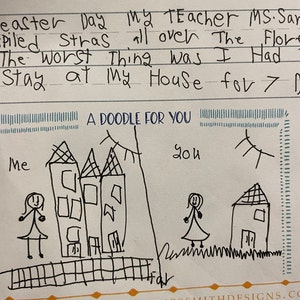 easter Day My TEacher MS. San
piled Stras all over The Flor
The worst Thing was I Had
Stay at My House for 7 D
A DOODLE FOR YOU
Me
you
far
SMITHDESIGNS.CO